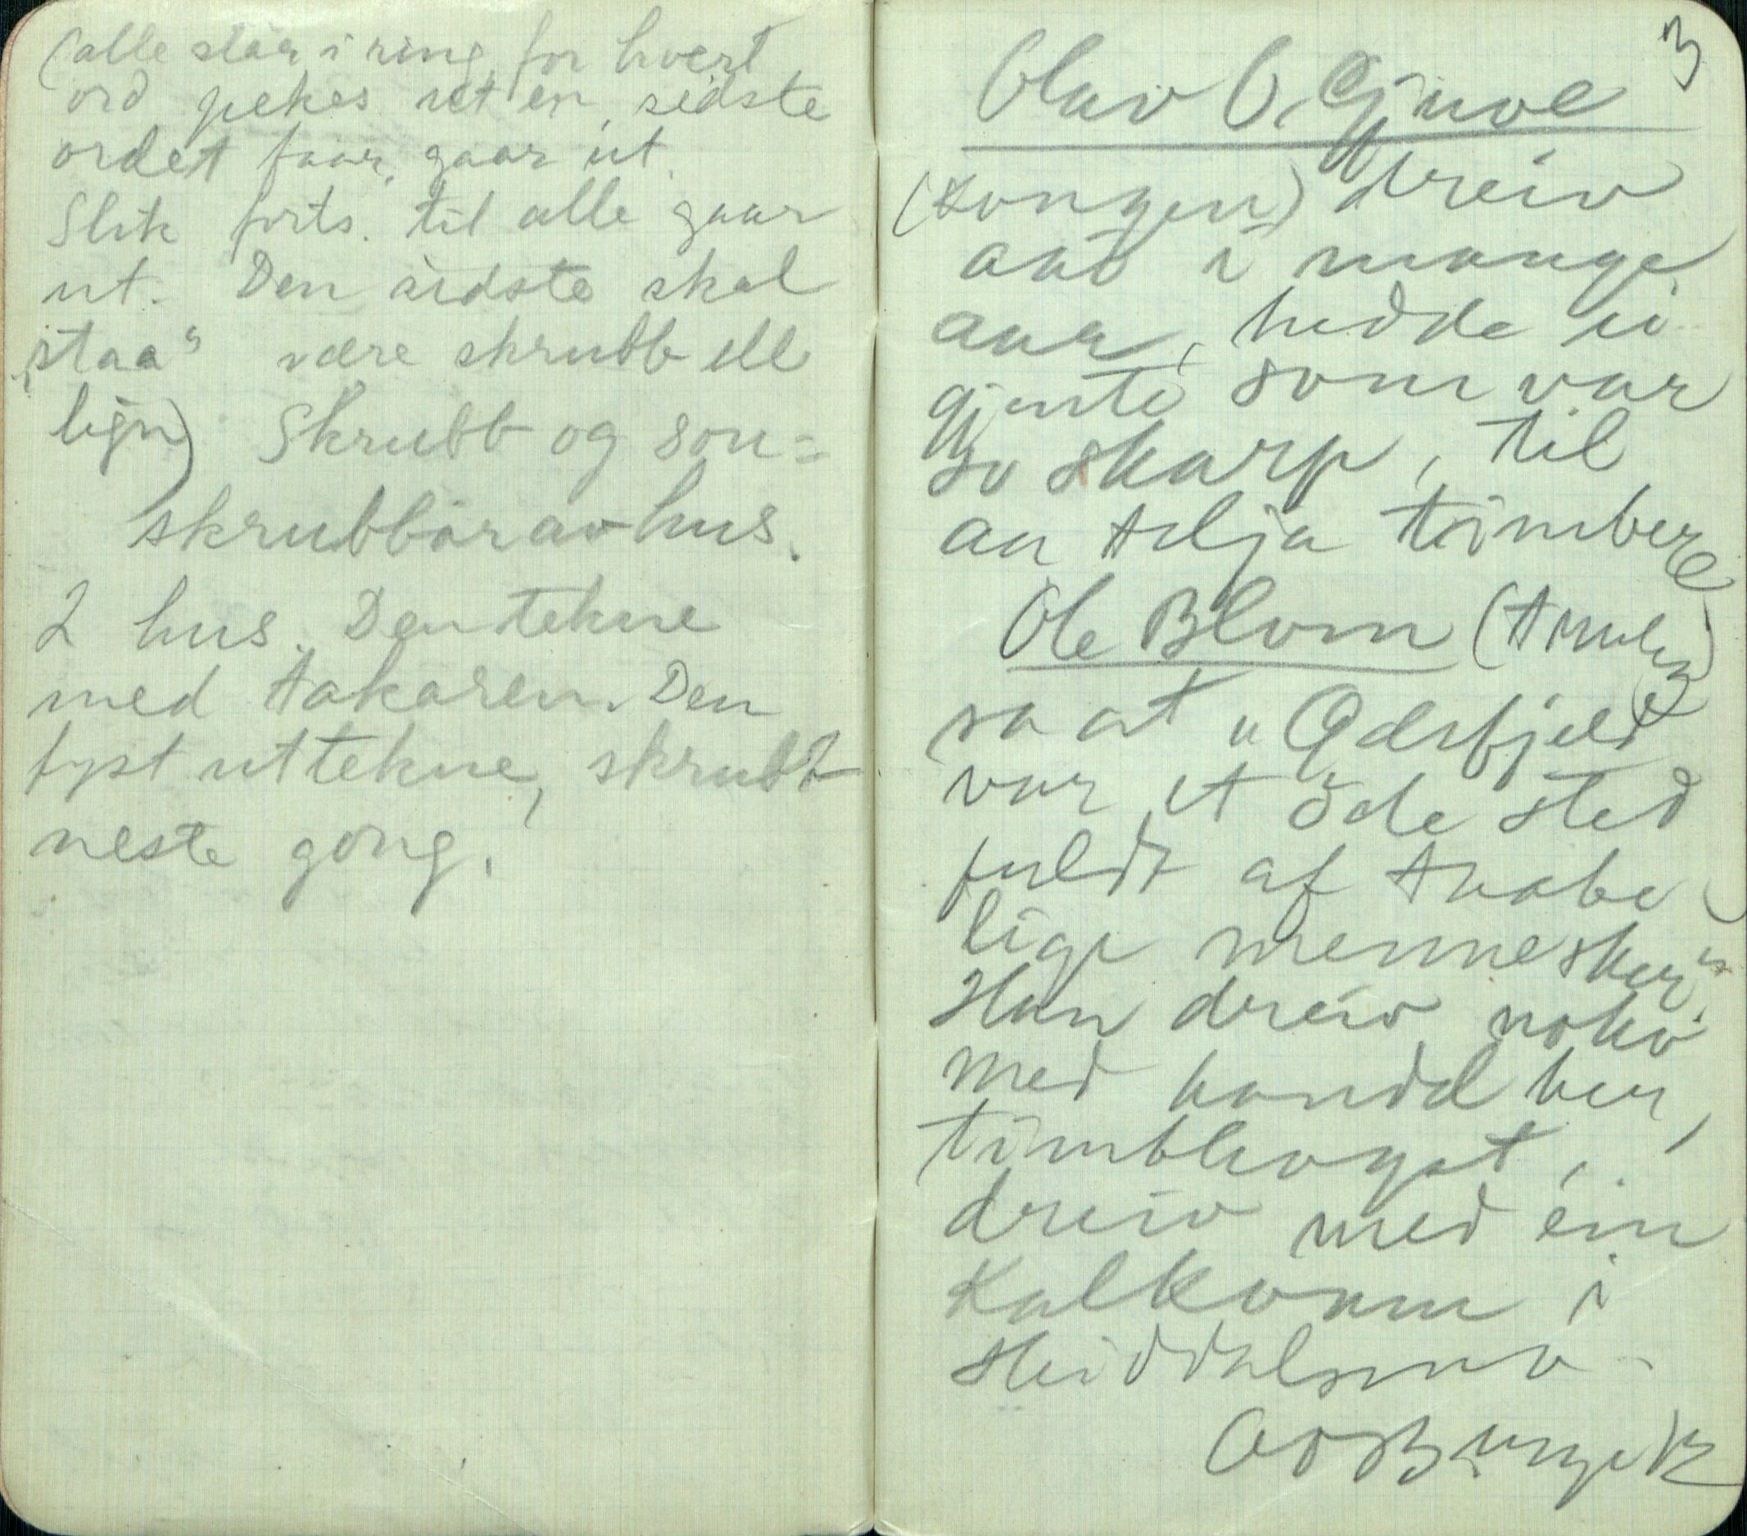 (alle staar i ring, for hvert
ord pekes ut en, sidste
ordet faar, gaar ut.
Slik forts. til alle gaar
ut. Den sidste skal
„staa“ være skrubb ell
lign) Skrubb og son=
skrubbaravhus.
2 hus. Den tekne
med takaren. Den
fyst uttekne, skrubb
neste gong.
3
Olav O. Gjuve
(kongen) dreiv
aað i mange
aar, hadde ei
gjente som var
so skarp, til
aa telja timbere
Ole Blom
sa at „Ødsfjeld
var et öde sted
fuldt af taabe
lige mennesker“.
Han dreiv noko
med handel her,
timbhogst,
dreiv med ein
Kalkomn i
Heiddalsmo -